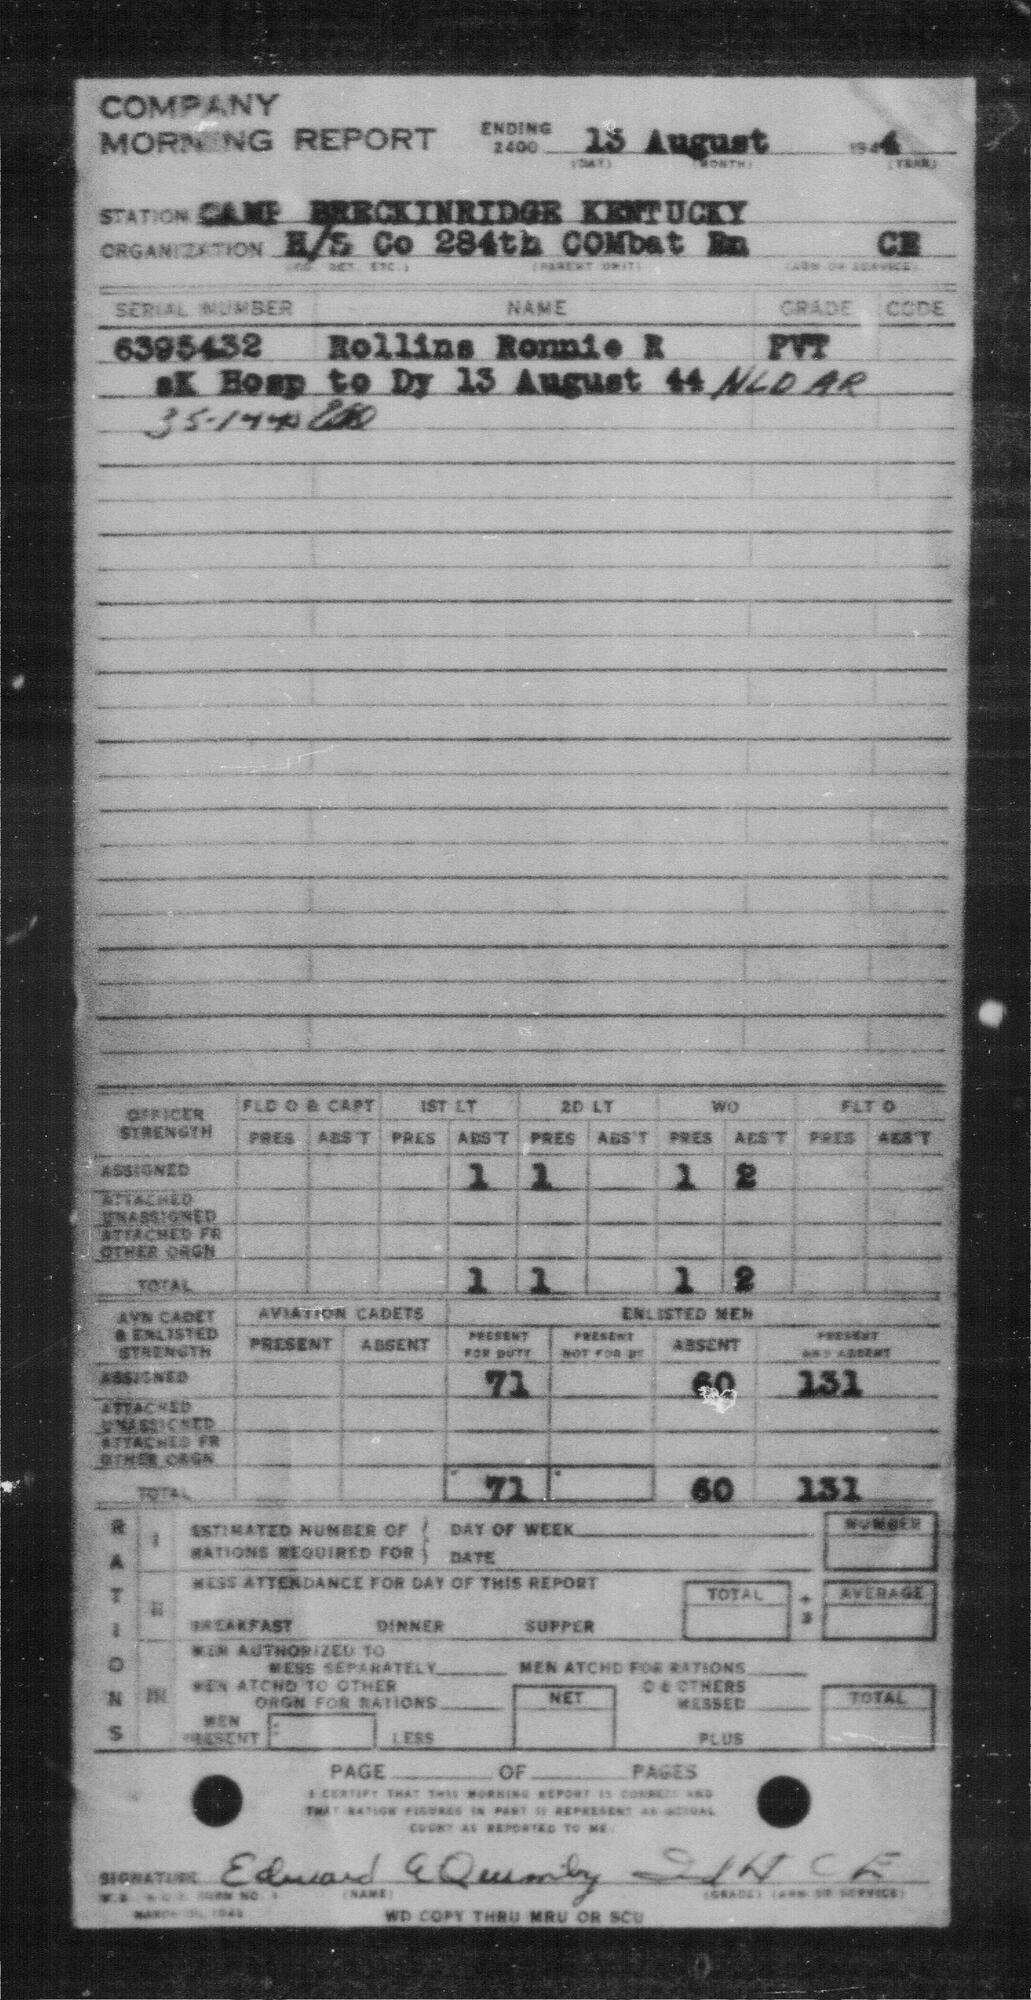 COMPANY
MORNING REPORT ENDING 2400 13 August 1944
(DAY) (MONTH) (YEAR)
STATION CAMP BRECKINRIDGE KENTUCKY
ORGANIZATION H/S Co 284th COMbat Bn CE
(CO. DET. ETC.) (PARENT UNIT) (ARM OR SERVICE)
SERIAL NUMBER NAME GRADE CODE
6395432 Rollins Ronnie R PVT
sK Hosp to Dy 13 August 44 NLD AR
35-1440
OFFICER STRENGTH FLD O & CAPT 1ST LT 2D LT WO FLT O
PRES ABS'T PRES ABS'T PRES ABS'T PRES ABS'T PRES ABS'T
ASSIGNED 1 1 1 2
ATTACHED UNASSIGNED
ATTACHED FR OTHER ORGN
TOTAL 1 1 1 2
AVN CADET & ENLISTED STRENGTH AVIATION CADETS ENLISTED MEN
PRESENT ABSENT PRESENT FOR DUTY PRESENT NOT FOR DY ABSENT PRESENT AND ABSENT
ASSIGNED 71 60 131
ATTACHED UNASSIGNED
ATTACHED FR OTHER ORGN
TOTAL 71 60 131
RATIONS
I ESTIMATED NUMBER OF RATIONS REQUIRED FOR DAY OF WEEK NUMBER
DATE
II MESS ATTENDANCE FOR DAY OF THIS REPORT TOTAL ÷ 3 AVERAGE
BREAKFAST DINNER SUPPER
III MEN AUTHORIZED TO MESS SEPARATELY MEN ATCHD FOR RATIONS
MEN ATCHD TO OTHER ORGN FOR RATIONS NET O & OTHERS MESSED TOTAL
MEN PRESENT : LESS PLUS
PAGE OF PAGES
I CERTIFY THAT THIS MORNING REPORT IS CORRECT AND
THAT RATION FIGURES IN PART II REPRESENT AN ACTUAL
COUNT AS REPORTED TO ME.
SIGNATURE Edward E Quimby 2d Lt C E
W.D. A.G.O. FORM NO. 1 (NAME) (GRADE) (ARM OR SERVICE)
WD COPY THRU MRU OR SCU